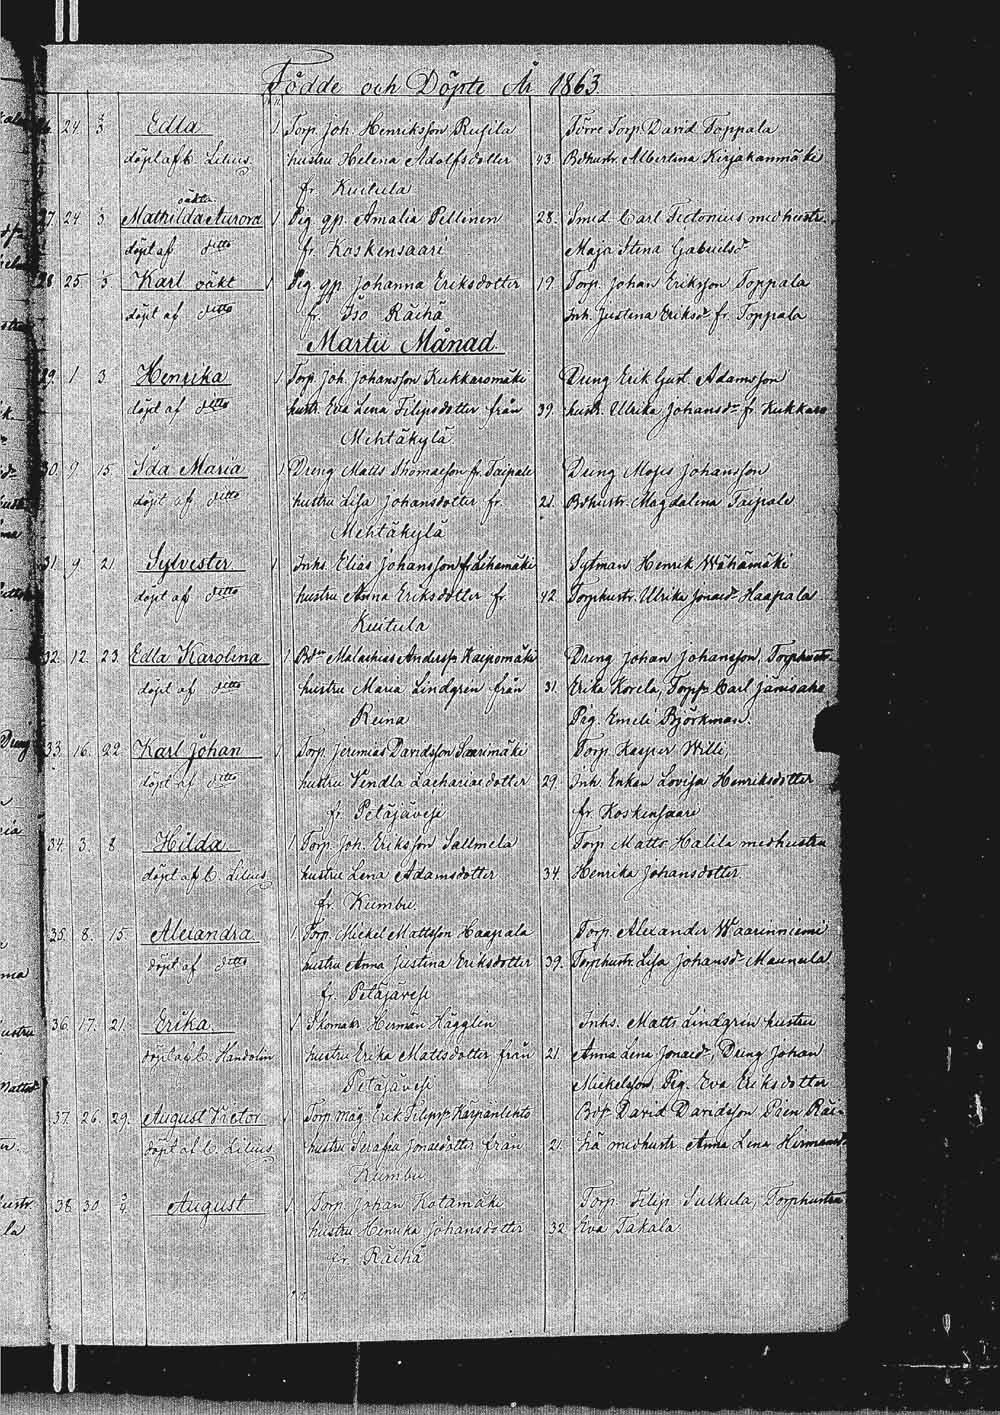 Födde och Döpte År 1863
24. 2/3 Edla 1 Torp. Joh. Henriksson Rusila Förre Torp. David Toppala
döpt af C. Lilius. hustru Helena Adolfsdotter 43. Bdhustr. Albertina Kirjakanmäki
fr. Kuitula
oäkta
27. 24. Mathilda Aurora 1 Pig. gp. Amalia Pellinen 28. Smed Carl Tectonius med hustr.
döpt af ditto fr. Koskensaari Maja Stina Gabrielsdr
28 25. Karl oäkt 1 Pig. gp. Johanna Eriksdotter 19 Torp. Johan Eriksson Toppala
döpt af ditto fr. Iso Räihä Inh. Justina Eriksdr fr. Toppala
Martii Månad.
29. 1 3. Henrika 1 Torp. Joh. Johansson Kukkaromäki Dreng Erik Gust. Adamsson
döpt af ditto hustr. Eva Lena Filipsdotter från 39. hustr. Ulrika Johansdr fr. Kukkaro
Mehtäkylä.
30. 9. 15. Ida Maria 1 Dreng Matts Thomasson fr. Taipale Dreng Moses Johansson
döpt af ditto hustru Lisa Johansdotter fr. 21. Bdhustr. Magdalena Taipale
Mehtäkylä
31. 9. 21. Sylvester 1 Inhs. Elias Johansson fr. Lihamäki Sytman Henrik Wähämäki
döpt af ditto hustru Anna Eriksdotter fr 42. Torphustr. Ulrika Jonasdr Haapala
Kuitula
32. 12. 23. Edla Karolina 1 Bdn Malachias Anderss. Karpomäki Dreng Johan Johansson, Torphustr.
döpt af ditto hustru Maria Lindgrén från 31. Erika Korela, Torpp. Carl
Reina Pig. Emeli Björkman.
33. 16. 22. Karl Johan 1 Torp. Jeremias Davidsson Saarimäki Torp. Kasper Willi,
döpt af ditto hustru Vendla Zachariasdotter 29. Inh. Enkan Lovisa Henriksdotter
fr. Petäjävesi fr. Koskensaari
34. 3. 8 Hilda 1 Torp. Joh. Eriksson Sallmela Torp. Matts Halila med hustru
döpt af C. Lilius hustru Lena Adamsdotter 34. Henrika Johansdotter
fr. Kumbu.
35. 8. 15. Alexandra 1 Torp. Mickel Mattsson Haapala Torp. Alexander Waarinniemi
döpt af ditto hustru Anna Justina Eriksdotter 39. Torphustr. Lisa Johansdr Maunula
fr. Petäjävesi
36. 17. 21. Erika 1 Skomak. Herman Hägglén Inhs. Matts Lindgrén hustru
döpt af C. Handolin hustru Erika Mattsdotter från 21. Anna Lena Jonasdr, Dreng Johan
Petäjävesi Mickelsson, Pig. Eva Eriksdotter
37. 26. 29. August Victor 1 Torp. mag. Erik Filipss. Karpänlehto Bdr David Davidsson, Räi-
döpt af C. Lilius hustru Serafia Jonasdotter från 21. hä med hustr. Anna Lena Hermansd.
Kumbu
38. 30. August 1. Torp. Johan Katamäki Torp. Filip Sulkula, Torphustru
hustru Henrika Johansdotter 32. Eva Takala
fr. Räihä